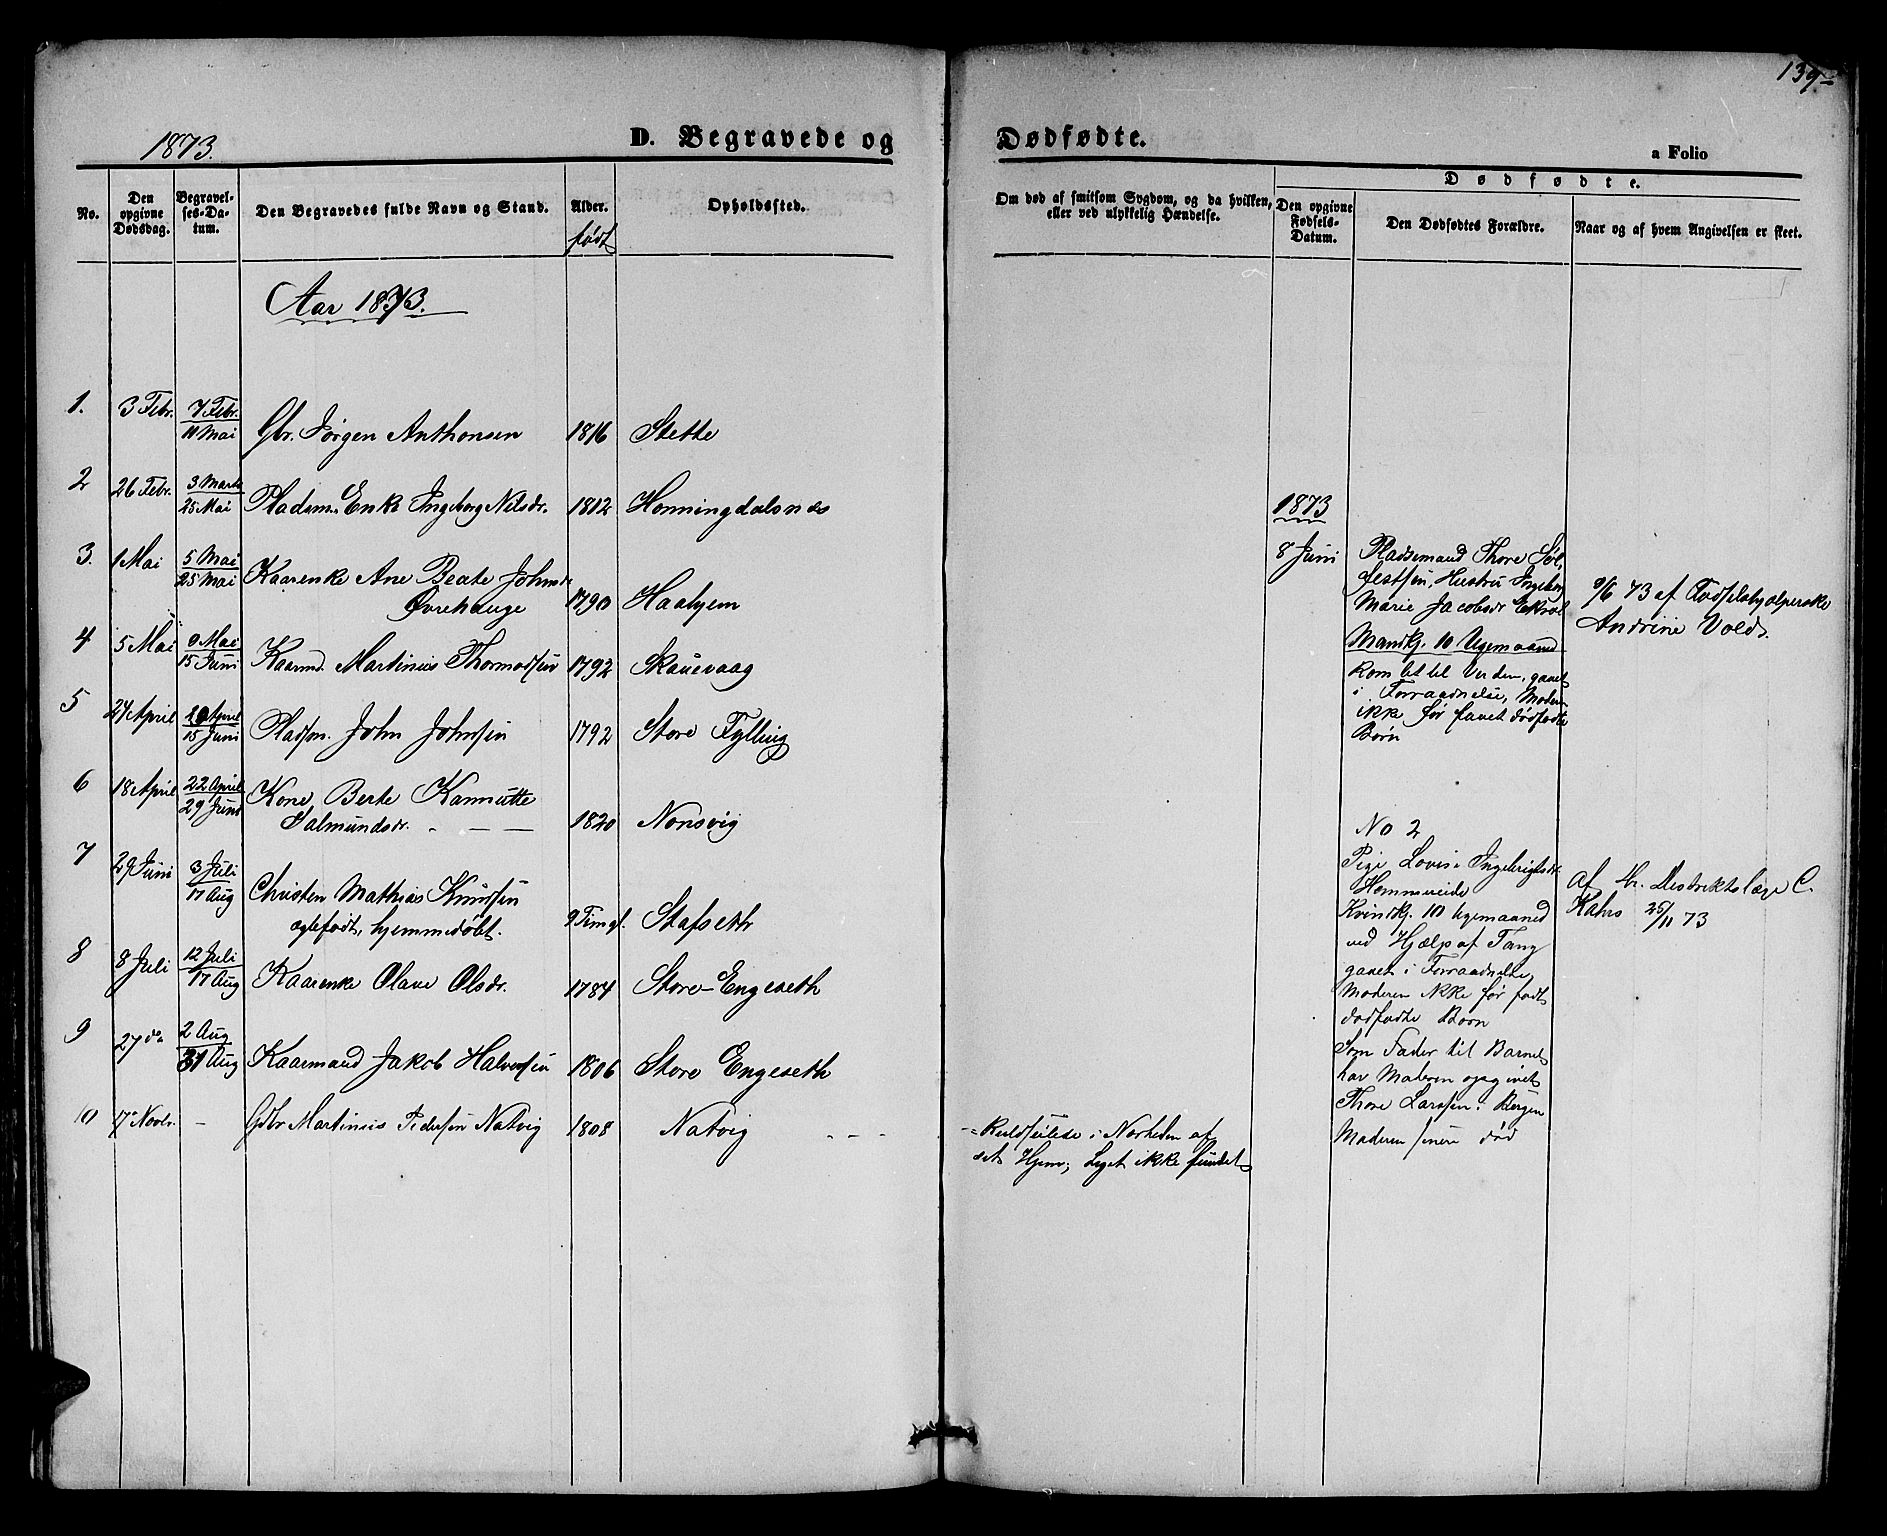 139
1873.
D. Begravede og
Dødfødte.
a Folio
No.
Den opgivne Dødsdag.
Begravelses-Datum.
Den Begravedes fulde Navn og Stand.
Alder.
født
Opholdssted.
Om død af smitsom Sygdom, og da hvilken, eller ved ulykkelig Hændelse.
Dødfødte.
Den opgivne Fødsels-Datum.
Den Dødfødtes Forældre.
Naar og af hvem Angivelsen er skeet.
Aar 1873.
1. 3 Febr. 7 Febr. 11 Mai Gbr. Jørgen Anthonsen 1816 Stette
2 26 Febr. 3 Marts 25 Mai Pladsm. Enke Ingeborg Nilsdr. 1812 Honningdalsnæs
3. 1 Mai 5 Mai 25 Mai Kaarenke Ane Beate Johnsdr
Øvrehauge 1790 Haahjem
4 5 Mai 9 Mai 15 Juni Kaarmd. Martinus Thormodsen 1792 Skauevaag
5 24 April 29 April 15 Juni Pladsm. John Johnsen 1792 Store Fylling
6 18 April 22 April 29 Juni Kone, Berte Kannutte
Salmundsdr. 1820 Nonsvig
7 29 Juni 3 Juli 17 Aug Christen Mathias Knudsen
ægtefødt, hjemmedøbt. 9 Tim gl. Stafseth
8 8 Juli 12 Juli 17 Aug Kaarenke Olave Olsdr. 1784 Store-Engeseth
9 27 do 2 Aug 31 Aug Kaarmand Jakob Halvorsen 1806 Store Engeseth
10 17 Novbr. - Gdbr Martinus Pedersen Natvig 1808 Natvig - - -
-"- Kuldseilese i Nærheden af
set Hjem; Liget ikke fundet
1873
8 Juni
Pladsemand Thore Sol
festsen, Hustru Ingeborg
Marie Jacobsdr Ekrol
Mandkj. 10 Ugemaaned
kom let til Verden, gaaet
i Forraadnelse, Moderen
ikke før havet dødfødte
Børn
9/6 73 af Fødselshjælperske
Andrine Vold.
No 2
Pige Lovise Ingebrigtsdr.
Hommereide
Kvindkj. 10 Ugemaaned
ved Hjælp af Tang
gaaet i Forraadnelse,
Moderen ikke før født
dødfødte Børn
Som Fader til Barnet
har Moderen opgivet
Thore Larssen i Bergen
Moderen senere død
Af Hr. Distriktslæge C.
Kahrs 25/11 73